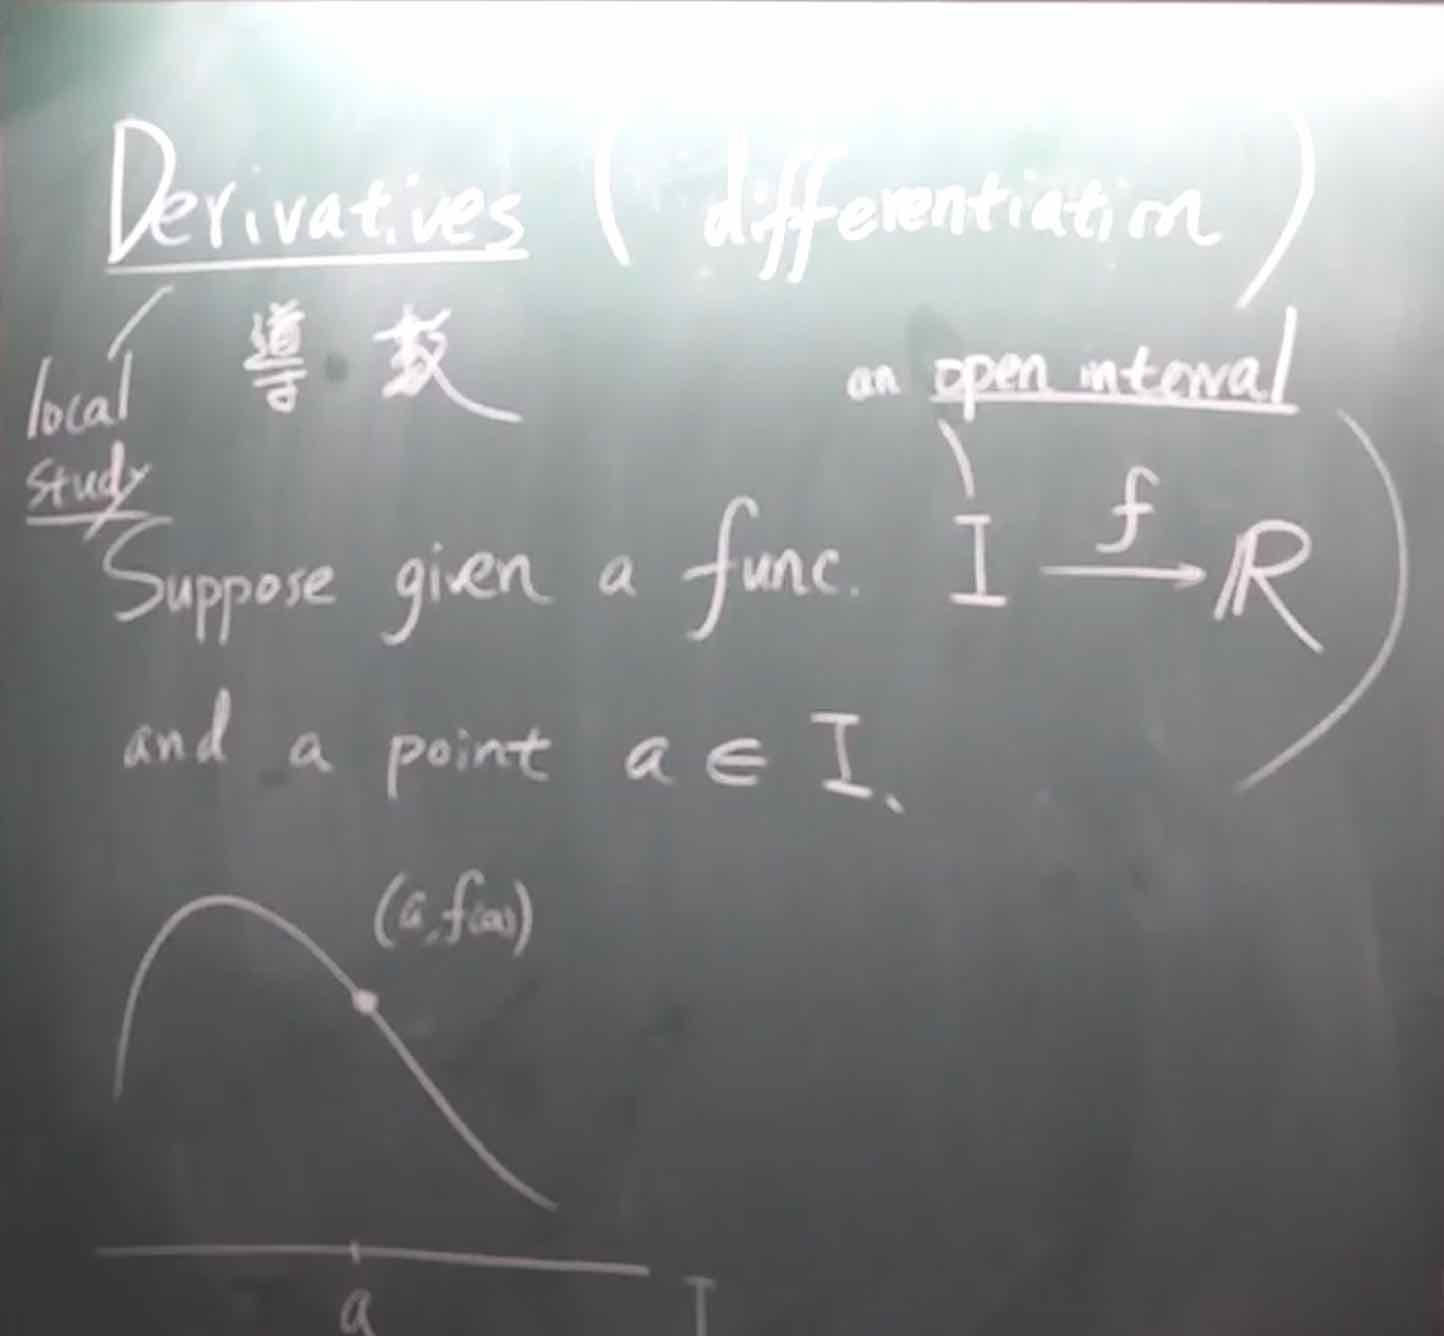 Derivatives (differentiation)
導數
local
study
an open interval
Suppose given a func. I → ℝ
f
and a point a ∈ I.
(a, f(a))
a
I